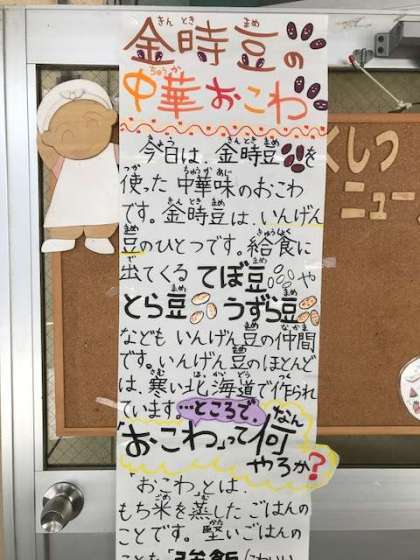 金時豆の
中華おこわ
今日は、金時豆を
使った中華味のおこわ
です。金時豆は、いんげん
豆のひとつです。給食に
出てくる てぼ豆や
とら豆 うずら豆
なども いんげん豆の仲間
です。いんげん豆のほとんど
は、寒い北海道で作られ
ています。…ところで、
「おこわ」って何
やろか?
「おこわ」とは、
もち米を蒸したごはんの
ことです。堅いごはんの
ことを「強飯
くしつ
ニュー